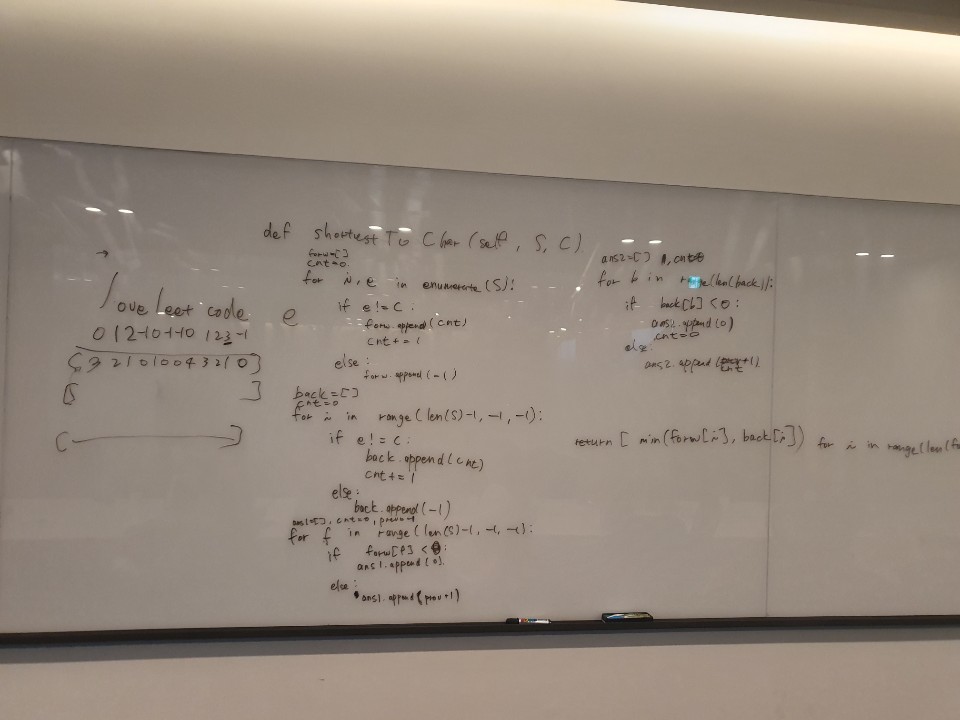 love leet code
0 1 2 -1 0 -1 -1 0 1 2 3 -1
e
def shortestToChar(self, S, C)
forw=[]
cnt=0
for i, e in enumerate(S):
if e != C:
forw.append(cnt)
cnt += 1
else:
forw.append(-1)
back=[]
cnt=0
for i in range(len(S)-1, -1, -1):
if e != C:
back.append(cnt)
cnt += 1
else:
back.append(-1)
ans1=[], cnt=0,
for f in range(len(S)-1, -1, -1):
if forw[f] < 0:
ans1.append(0)
else:
ans1.append(prev+1)
ans2=[]
for b in range(len(back)):
if back[b] < 0:
ans2.append(0)
cnt=0
else:
ans2.append(
cnt
return [ min(forw[i], back[i]) for i in range(len(fo